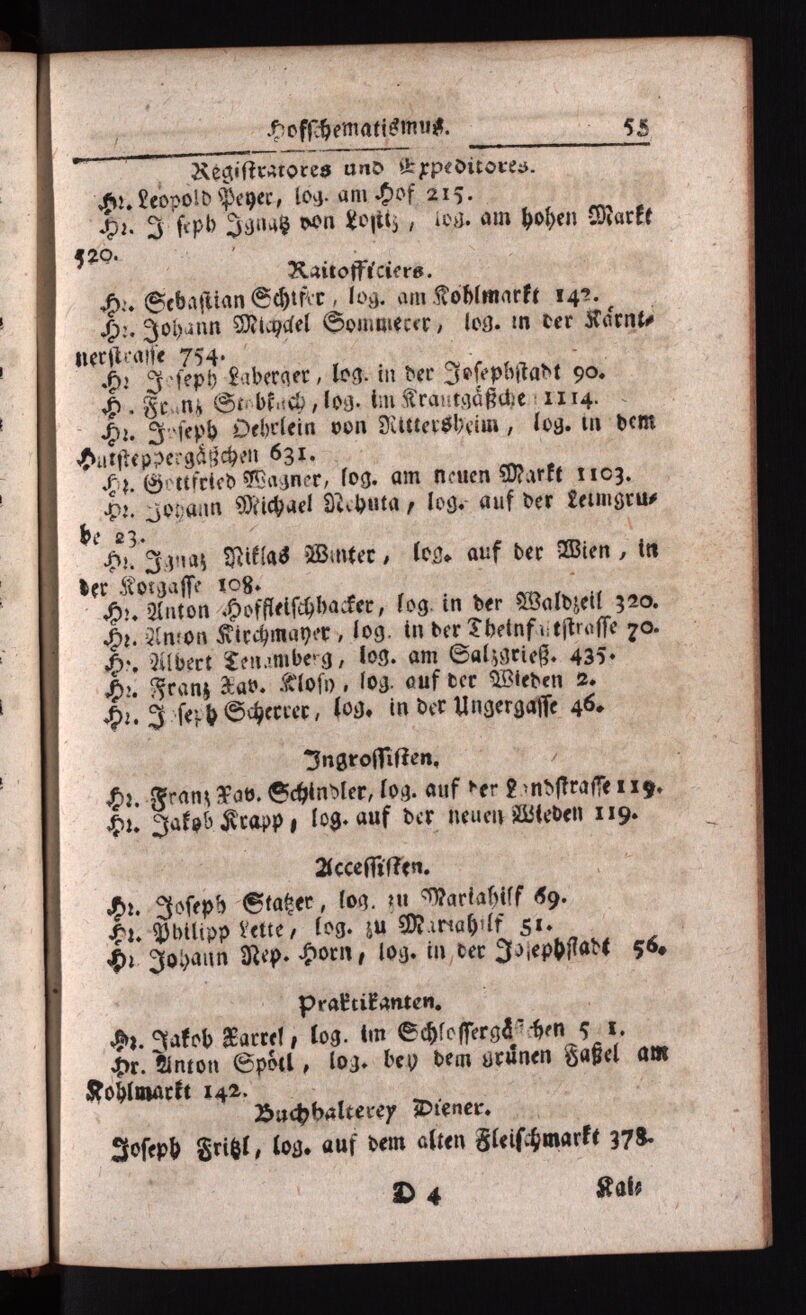 Hofschematismus. 55
Registratores und Expeditores.
Hr. Leopold Peyer, log. am Hof 215.
Hr. Joseph Ignatz von Lositz, log. am hohen Markt
520.
Raitofficiers.
Hr. Sebastian Schifer, log. am Kohlmarkt 142.
Hr. Johann Michael Sommerer, log. in der Kärnt-
nerstrasse 754.
Hr. Joseph Laberger, log. in der Josephstadt 90.
Hr. Franz log. im Krautgäßche 1114.
Hr. Joseph Oehrlein von Rittersheim, log. in dem
Hutsteppergäßchen 631.
Hr. Gottfried Wagner, log. am neuen Markt 1103.
Hr. Johann Michael Nehuta, log. auf der Leimgru-
be 23.
Hr. Ignaz Niklas Winter, log. auf der Wien, in
der Kotgasse 108.
Hr. Anton Hoffleischhacker, log. in der Waldzeil 320.
Hr. Anton Kirchmayer, log. in der 70.
Hr. Albert Tenamberg, log. am Salzgrieß. 435.
Hr. Franz Xav. Klosy, log. auf der Wieden 2.
Hr. Joseph Scherrer, log. in der Ungergasse 46.
Ingrossisten.
Hr. Franz Xav. Schindler, log. auf der Landstrasse 119.
Hr. Jakob Krapp, log. auf der neuen Wieden 119.
Accessisten.
Hr. Joseph Statzer, log. zu Mariahilf 69.
Hr. Philipp Lette, log. zu Mariahilf 51.
Hr. Johann Nep. Horn, log. in der Josephstadt 56.
Praktikanten.
Hr. Jakob Xarrel, log. im Schlossergäßchen
Hr. Anton Spöttl, log. bey dem grünen Faßel am
Kohlmarkt 142.
Buchhalterey Diener.
Joseph Fritzl, log. auf dem alten Fleischmarkt 378.
D 4 Kai-